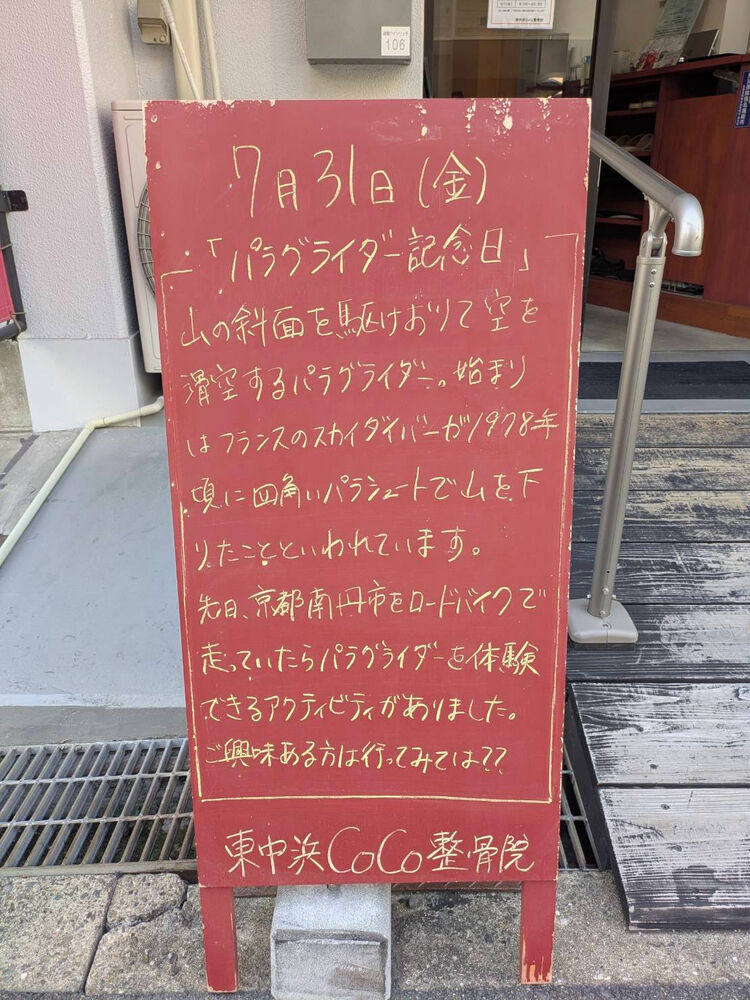 106
7月31日(金)
「パラグライダー記念日」
山の斜面を駆けおりて空を
滑空するパラグライダー。始まり
はフランスのスカイダイバーが1978年
頃に四角いパラシュートで山を下
りたことといわれています。
先日、京都南丹市をロードバイクで
走っていたらパラグライダーを体験
できるアクティビティがありました。
ご興味ある方は行ってみては??
東中浜CoCo整骨院